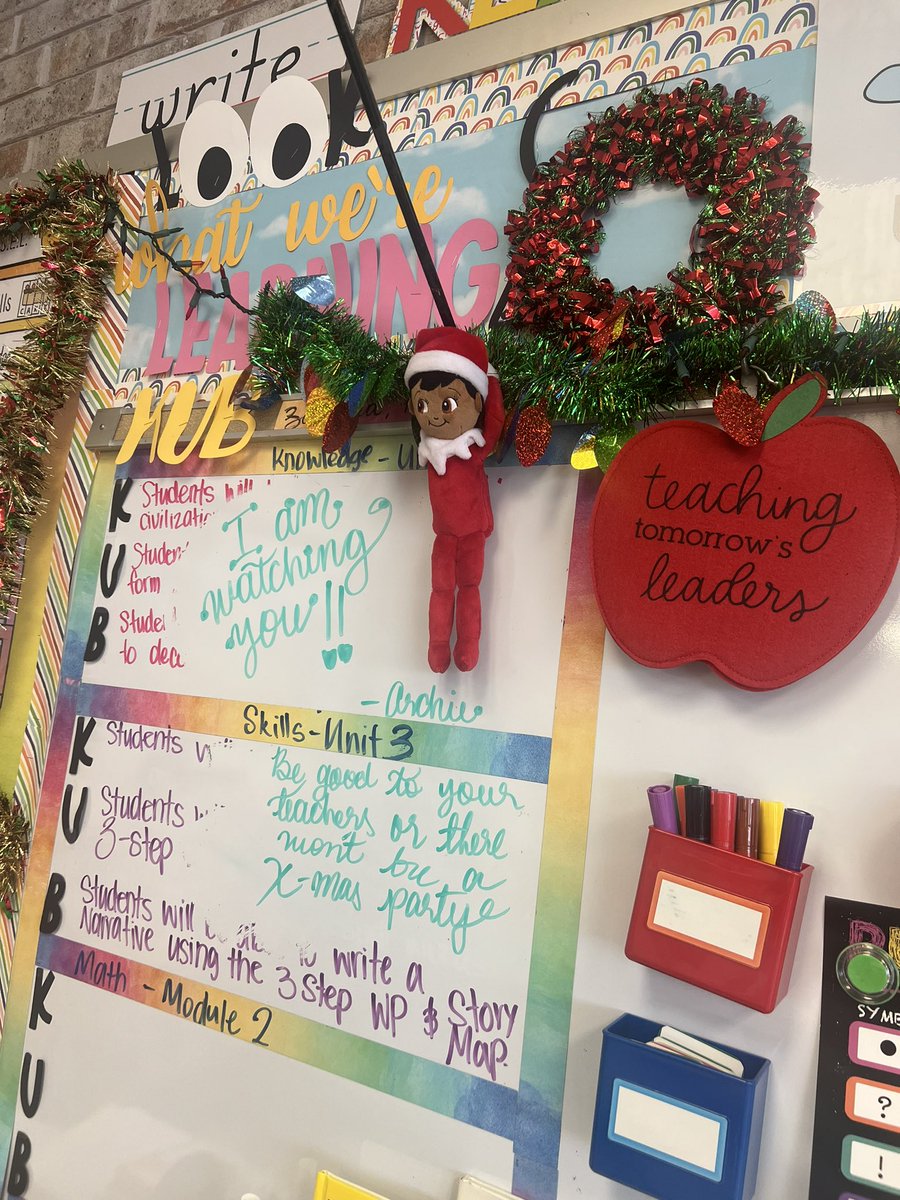 write
look
what we're
LEARNING
HUB
Knowledge - U
K
U
B
Students will
civilizatio
Studen
form
Studen
to dec
I am
watching
you!!
- Archie
Skills - Unit 3
K
U
B
Students
Students
3-step
Students will be able to write a
Narrative using the 3 Step WP & Story
Map.
Be good to your
teachers or there
won't be a
X-mas party
Math - Module 2
K
U
B
teaching
tomorrow's
leaders
SYM
?
!